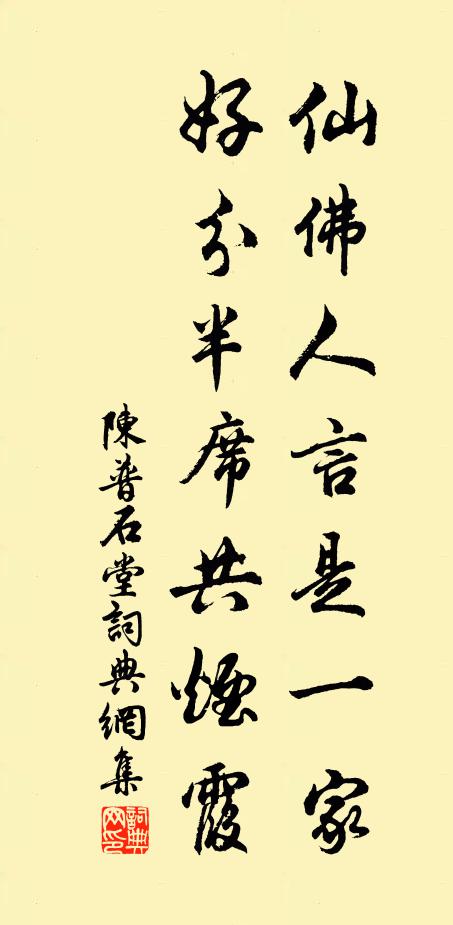 仙佛人言是一家
好分半席共煙霞
陳普石堂詞典網集
詞典网印